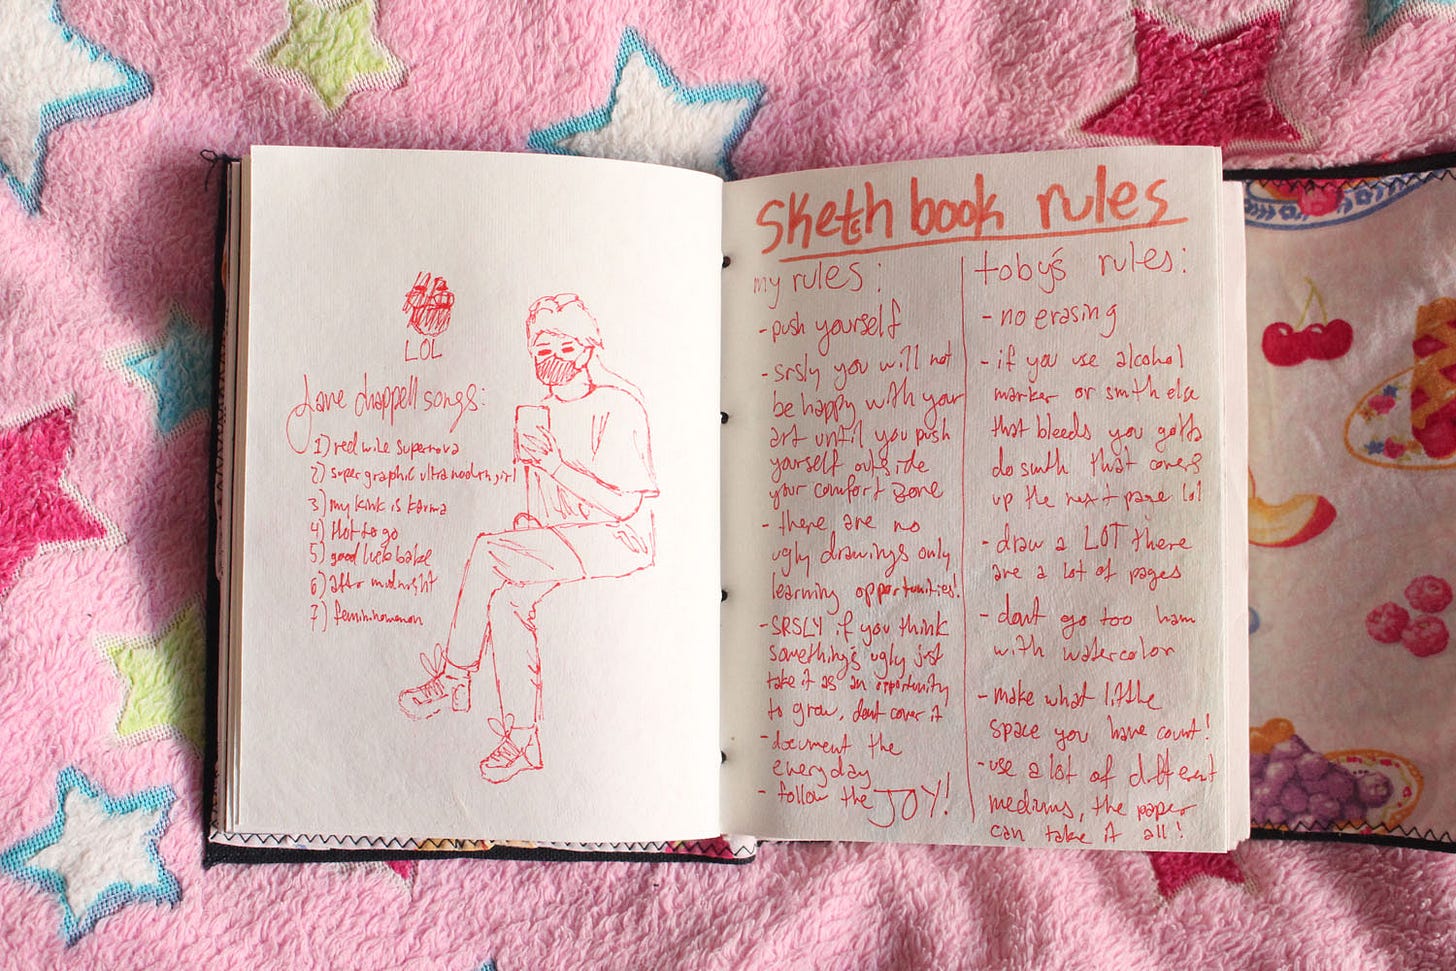 LOL
fave chappell songs:
1) red wine supernova
2) super graphic ultra modern girl
3) my kink is karma
4) Hot to go
5) good luck babe
6) after midnight
7) femininomenon
Sketch book rules
my rules:
- push yourself
- srsly you will not
be happy with your
art until you push
yourself outside
your comfort zone
- there are no
ugly drawings only
learning opportunities!
- SRSLY if you think
something's ugly just
take it as an opportunity
to grow, dont cover it
- document the
everyday
- follow the JOY!
toby's rules:
- no erasing
- if you use alcohol
marker or smth else
that bleeds you gotta
do smth that covers
up the next page lol
- draw a LOT there
are a lot of pages
- dont go too ham
with watercolor
- make what little
space you have count!
- use a lot of different
mediums, the paper
can take it all!